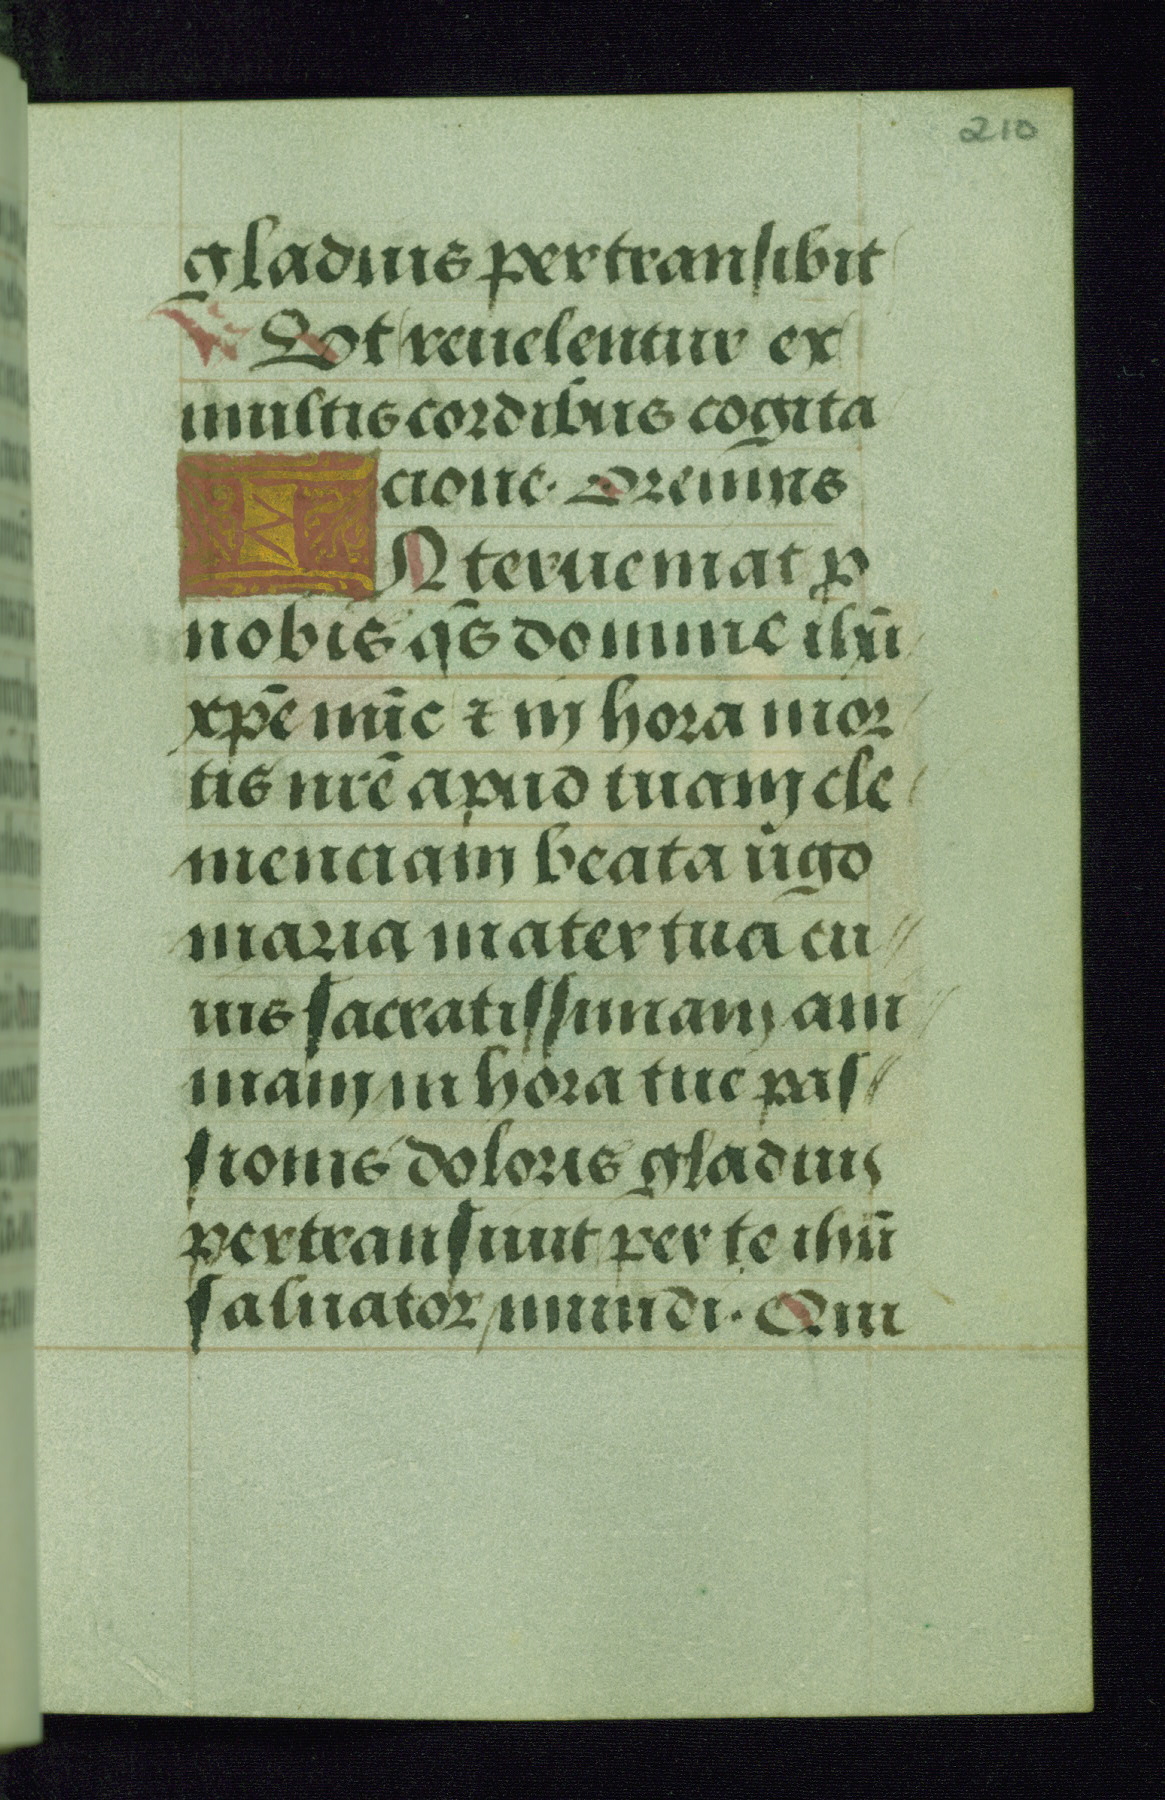 210
gladius pertransibit
℟ Vt reuelentur ex
multis cordibus cogita
cione. Oremus
INteruemat p
nobis q̄s domine ihū
xpē nūc ⁊ in hora mor
tis nrē apud tuam cle
menciam beata ṽgo
maria mater tua cu
ius sacratissimam ani
mam in hora tue pas
sionis doloris gladius
pertransiuit per te ihū
saluator mundi. Qui